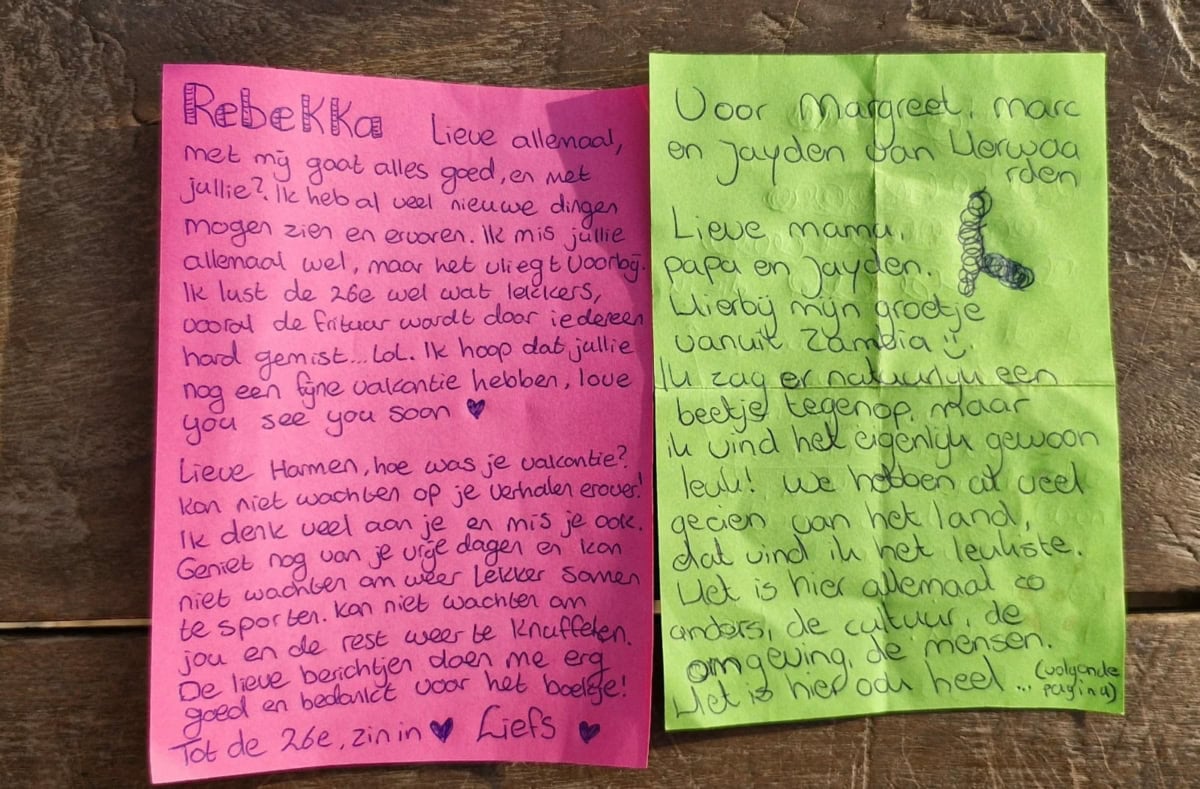 Rebekka Lieve allemaal,
met mij gaat alles goed, en met
jullie? Ik heb al veel nieuwe dingen
mogen zien en ervaren. Ik mis jullie
allemaal wel, maar het vliegt voorbij.
Ik lust de 26e wel wat lekkers,
vooral de frituur wordt door iedereen
hard gemist... Lol. Ik hoop dat jullie
nog een fijne vakantie hebben, love
you see you soon ♥
Lieve Harmen, hoe was je vakantie?
Kan niet wachten op je verhalen erover!
Ik denk veel aan je en mis je ook.
Geniet nog van je vrije dagen en kan
niet wachten om weer lekker samen
te sporten. Kan niet wachten om
jou en de rest weer te knuffelen.
De lieve berichtjen doen me erg
goed en bedankt voor het boekje!
Tot de 26e, zin in ♥ Liefs ♥
Voor Margreet, marc
en Jayden van Herwaa
rden
Lieve mama,
papa en Jayden.
Hierbij mijn groetje
vanuit Zambia :)
Ik zag er natuurlijk een
beetje tegenop, maar
ik vind het eigenlijk gewoon
leuk! We hebben al veel
gezien van het land,
dat vind ik het leukste.
Het is hier allemaal zo
anders, de cultuur, de
omgeving, de mensen.
Het is hier ook heel ... (volgende
pagina)